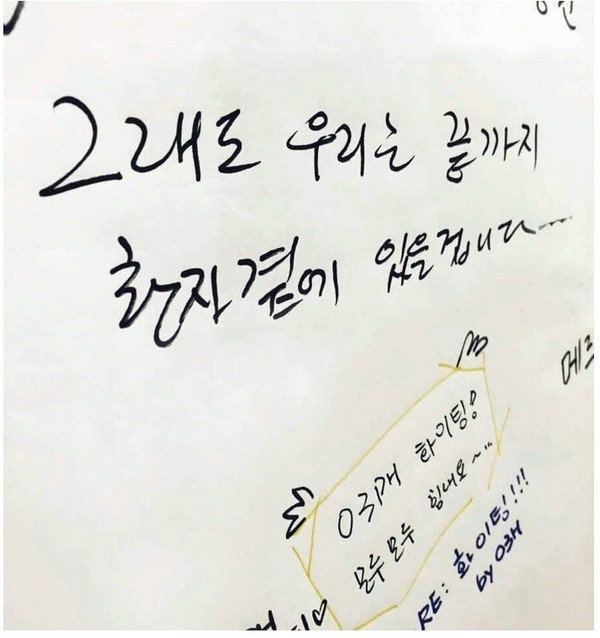 그래도 우리는 끝까지
환자곁에 있을겁니다...
메르
03기개 화이팅!
모두모두 힘내요~
RE: 화이팅!!!
by 03개